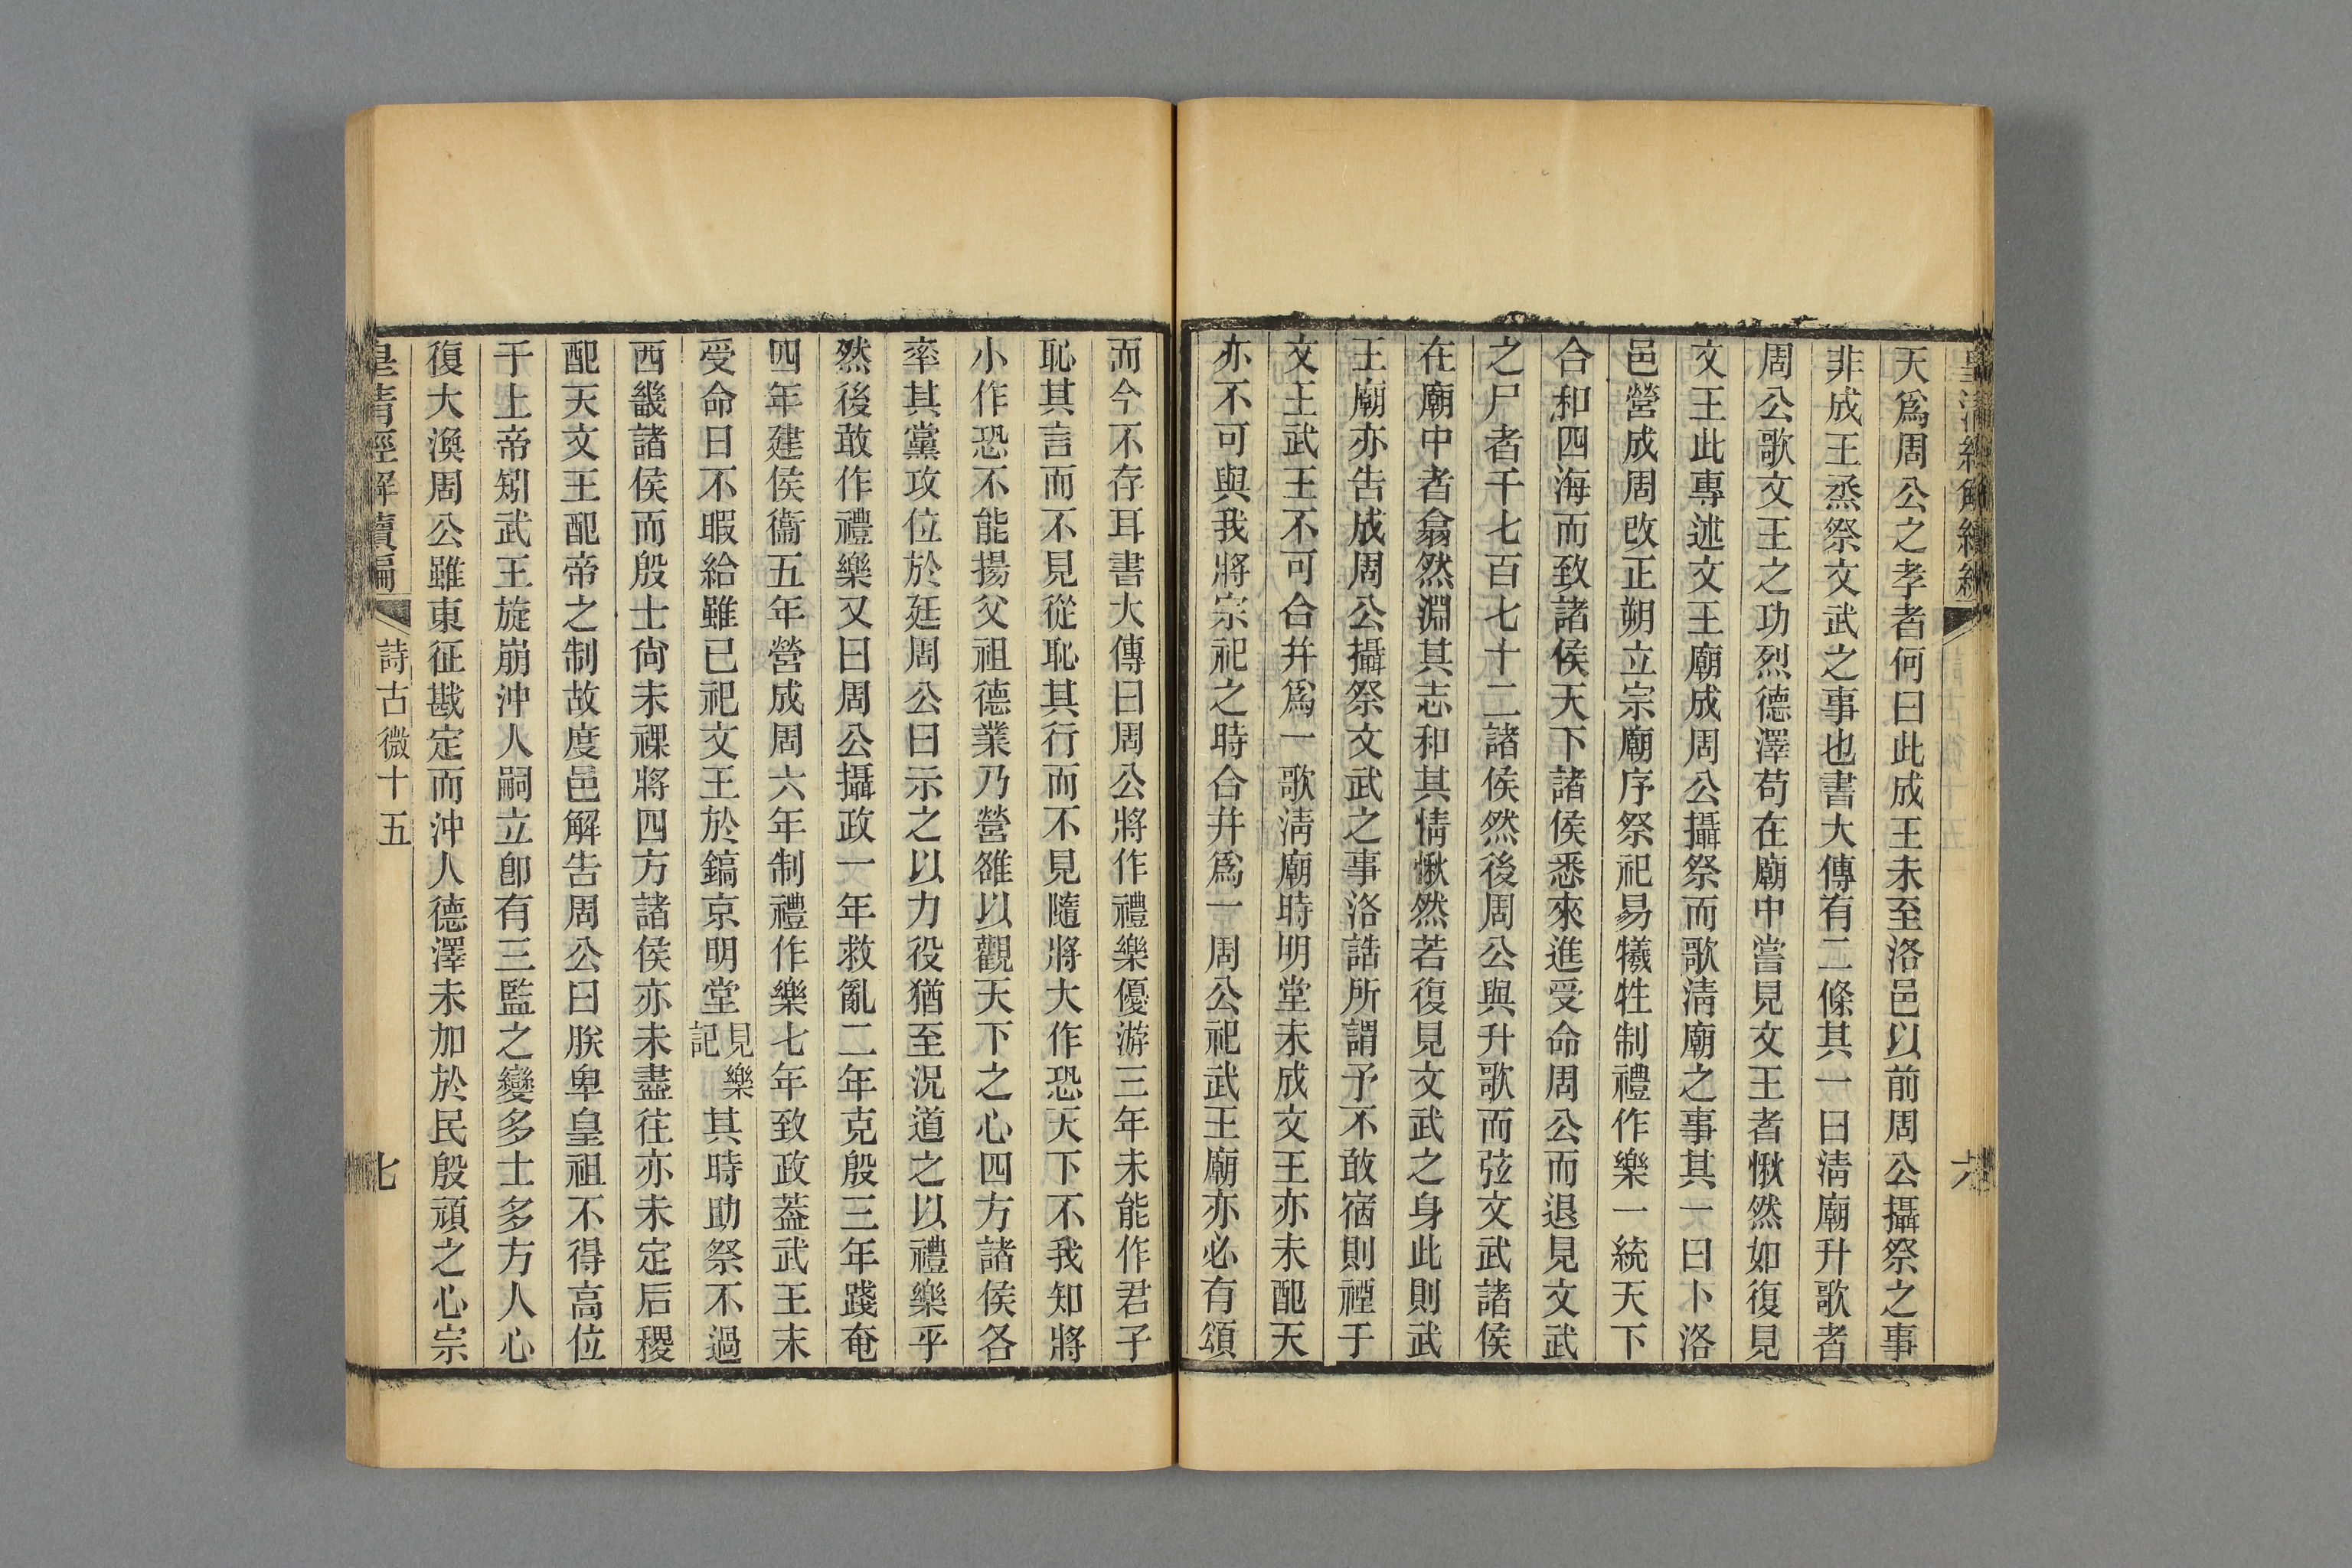 皇清經解續編
六
天爲周公之孝者何曰此成王未至洛邑以前周公攝祭之事
非成王烝祭文武之事也書大傳有二條其一曰淸廟升歌者
周公歌文王之功烈德澤苟在廟中嘗見文王者愀然如復見
文王此專述文王廟成周公攝祭而歌淸廟之事其一曰卜洛
邑營成周改正朔立宗廟序祭祀易犧牲制禮作樂一統天下
合和四海而致諸侯天下諸侯悉來進受命周公而退見文武
之尸者千七百七十二諸侯然後周公與升歌而弦文武諸侯
在廟中者翕然淵其志和其情愀然若復見文武之身此則武
王廟亦告成周公攝祭文武之事洛誥所謂予不敢宿則禋于
文王武王不可合幷爲一歌淸廟時明堂未成文王亦未配天
亦不可與我將宗祀之時合幷爲一周公祀武王廟亦必有頌
而今不存耳書大傳曰周公將作禮樂優游三年未能作君子
恥其言而不見從恥其行而不見隨將大作恐天下不我知將
小作恐不能揚父祖德業乃營雒以觀天下之心四方諸侯各
率其黨攻位於廷周公曰示之以力役猶至況道之以禮樂乎
然後敢作禮樂又曰周公攝政一年救亂二年克殷三年踐奄
四年建侯衞五年營成周六年制禮作樂七年致政蓋武王末
受命日不暇給雖已祀文王於鎬京明堂見樂記其時助祭不過
西畿諸侯而殷士尙未祼將四方諸侯亦未盡往亦未定后稷
配天文王配帝之制故度邑解告周公曰朕卑皇祖不得高位
于上帝矧武王旋崩沖人嗣立卽有三監之變多士多方人心
復大渙周公雖東征戡定而沖人德澤未加於民殷頑之心宗
皇淸經解續編
詩古微十五
七